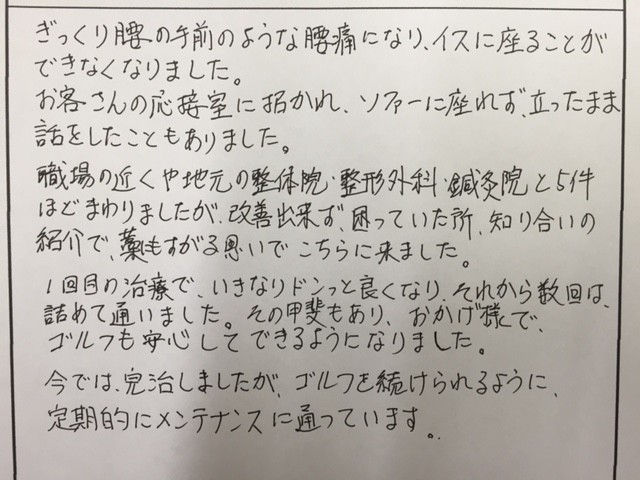 ぎっくり腰の手前のような腰痛になり、イスに座ることが
できなくなりました。
お客さんの応接室に招かれ、ソファーに座れず、立ったまま
話をしたこともありました。
職場の近くや地元の整体院・整形外科・鍼灸院と5件
ほどまわりましたが、改善出来ず、困っていた所、知り合いの
紹介で、藁もすがる思いでこちらに来ました。
1回目の治療で、いきなりドンっと良くなり、それから数回は、
詰めて通いました。その甲斐もあり、おかげ様で、
ゴルフも安心してできるようになりました。
今では、完治しましたが、ゴルフを続けられるように、
定期的にメンテナンスに通っています。